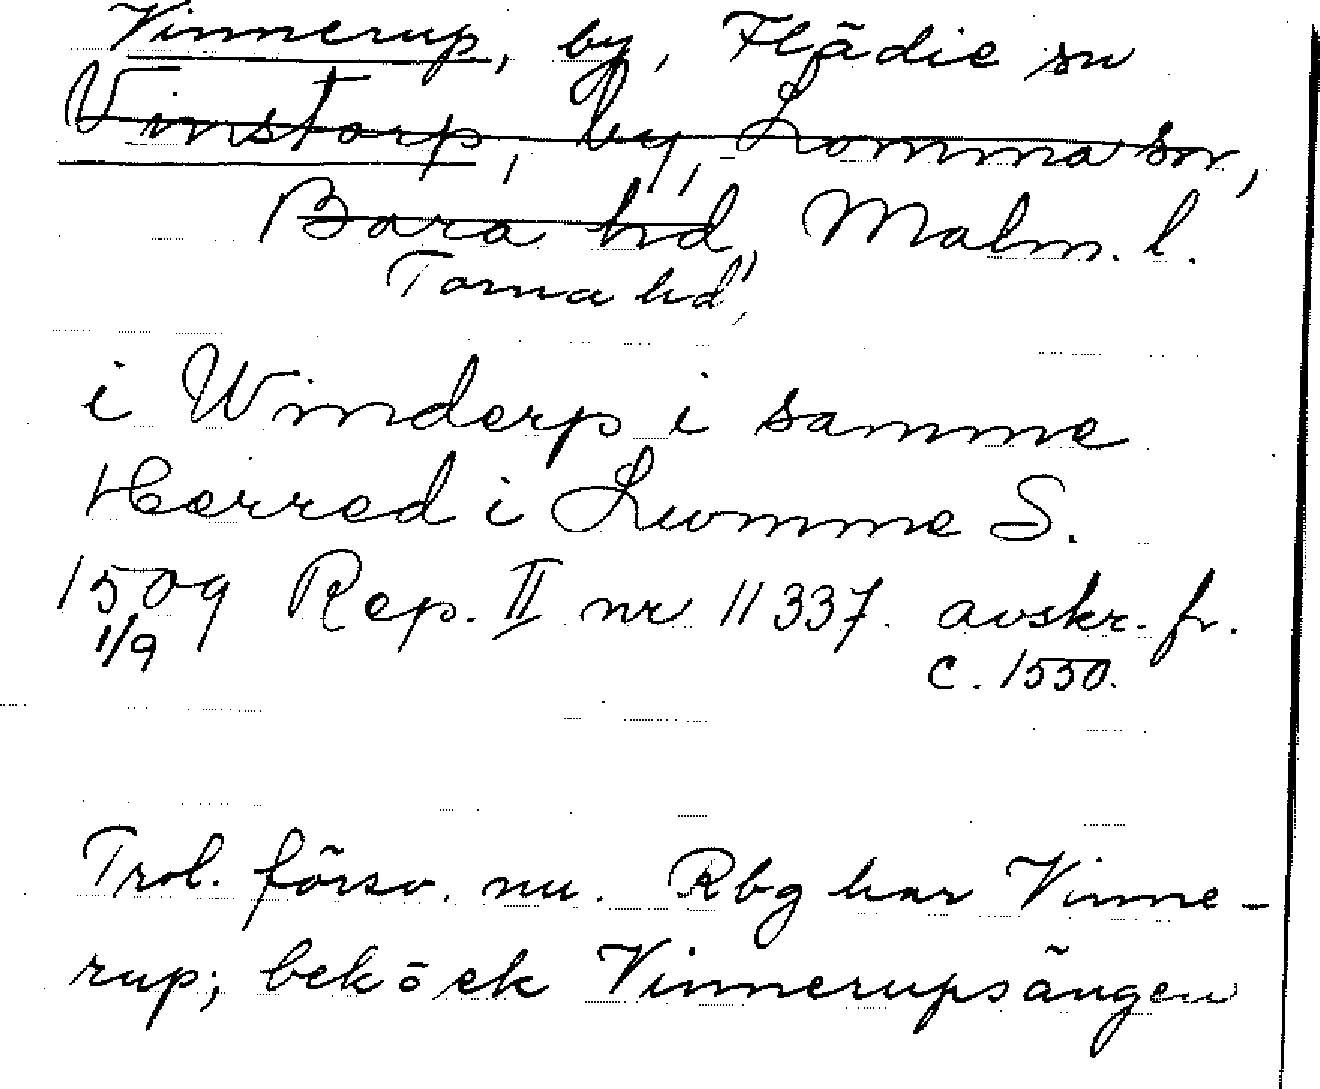 Vinnerup, by, Flädie sn
Vinstorp, by, Lomma sn,
Bara hd, Malm. l.
Torna hd,
i Winderp i samme
Herred i Lwomme S.
1509 Rep. II nr 11337. avskr. fr.
1/9 c. 1550.
Trol. försv. nu. Rbg har Vinne-
rup; bek ö ek Vinnerupsängen